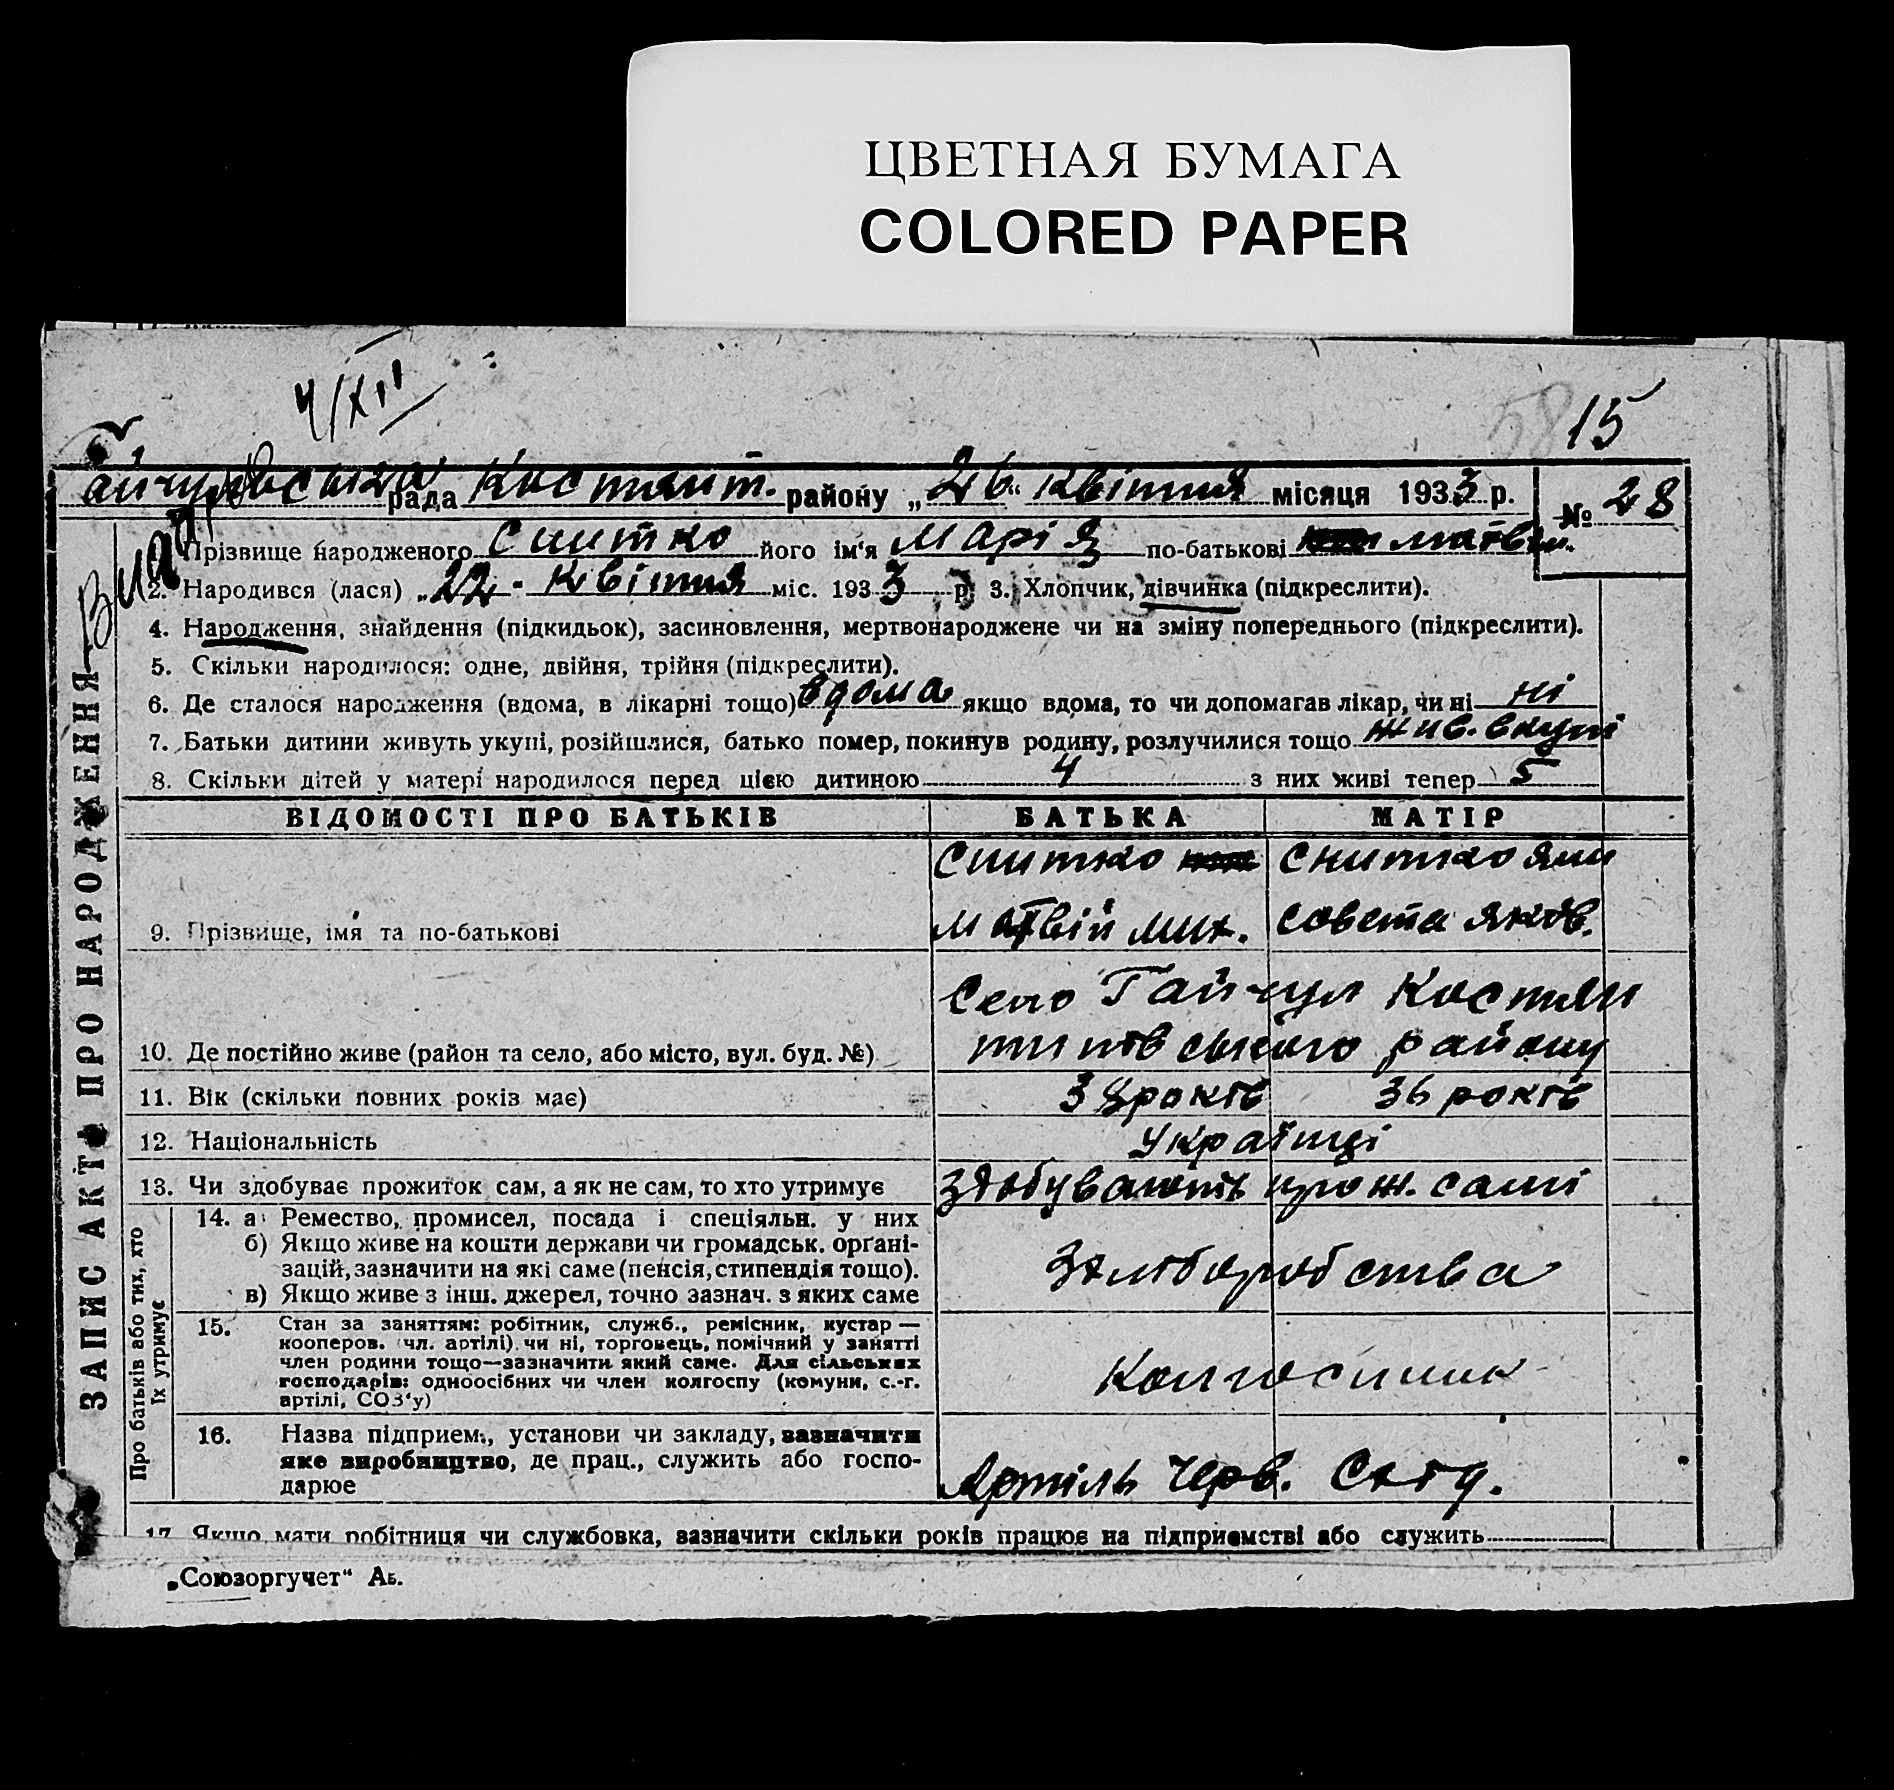 ЦВЕТНАЯ БУМАГА
COLORED PAPER
4/XII
58 15
рада Костянт. району „26“ квітня місяця 1933 р. № 28
Прізвище народженого Снитко його ім'я Марія по-батькові Матвіи.
2. Народився (лася) „22 - квітня міс. 1933 р. 3. Хлопчик, дівчинка (підкреслити).
4. Народження, знайдення (підкидьок), засиновлення, мертвонароджене чи на зміну попереднього (підкреслити).
5. Скільки народилося: одне, двійня, трійня (підкреслити).
6. Де сталося народження (вдома, в лікарні тощо) вдома якщо вдома, то чи допомагав лікар, чи ні ні
7. Батьки дитини живуть укупі, розійшлися, батько помер, покинув родину, розлучилися тощо жив. вкупі
8. Скільки дітей у матері народилося перед цією дитиною 4 з них живі тепер 5
ЗАПИС АКТ ПРО НАРОДЖЕННЯ
ВІДОМОСТІ ПРО БАТЬКІВ БАТЬКА МАТІР
Снитко Снитко Яли
9. Прізвище, імя та по-батькові Матвій Мих. совета Яков.
Село Гайчул Костян
10. Де постійно живе (район та село, або місто, вул. буд. №) тинівського району
11. Вік (скільки повних років має) років 36 років
12. Національність Українці
13. Чи здобуває прожиток сам, а як не сам, то хто утримує здобувають прож. самі
Про батьків або тих, хто
їх утримує
14. а) Ремество, промисел, посада і спеціяльн. у них
б) Якщо живе на кошти держави чи громадськ. орґані-
зацій, зазначити на які саме (пенсія, стипендія тощо). Хліборобства
в) Якщо живе з інш. джерел, точно зазнач. з яких саме
15. Стан за заняттям: робітник, служб., ремісник, кустар —
кооперов. (чл. артілі) чи ні, торговець, помічний у занятті
член родини тощо—зазначити який саме. Для сільських
господарів: одноосібних чи член колгоспу (комуни, с.-г. Колгоспник
артілі, СОЗ'у)
16. Назва підприєм., установи чи закладу, зазначити
яке виробництво, де прац., служить або госпо-
дарює Артіль Черв. Схід.
17. Якщо мати робітниця чи службовка, зазначити скільки років працює на підприємстві або служить
„Союзоргучет“ Аь.